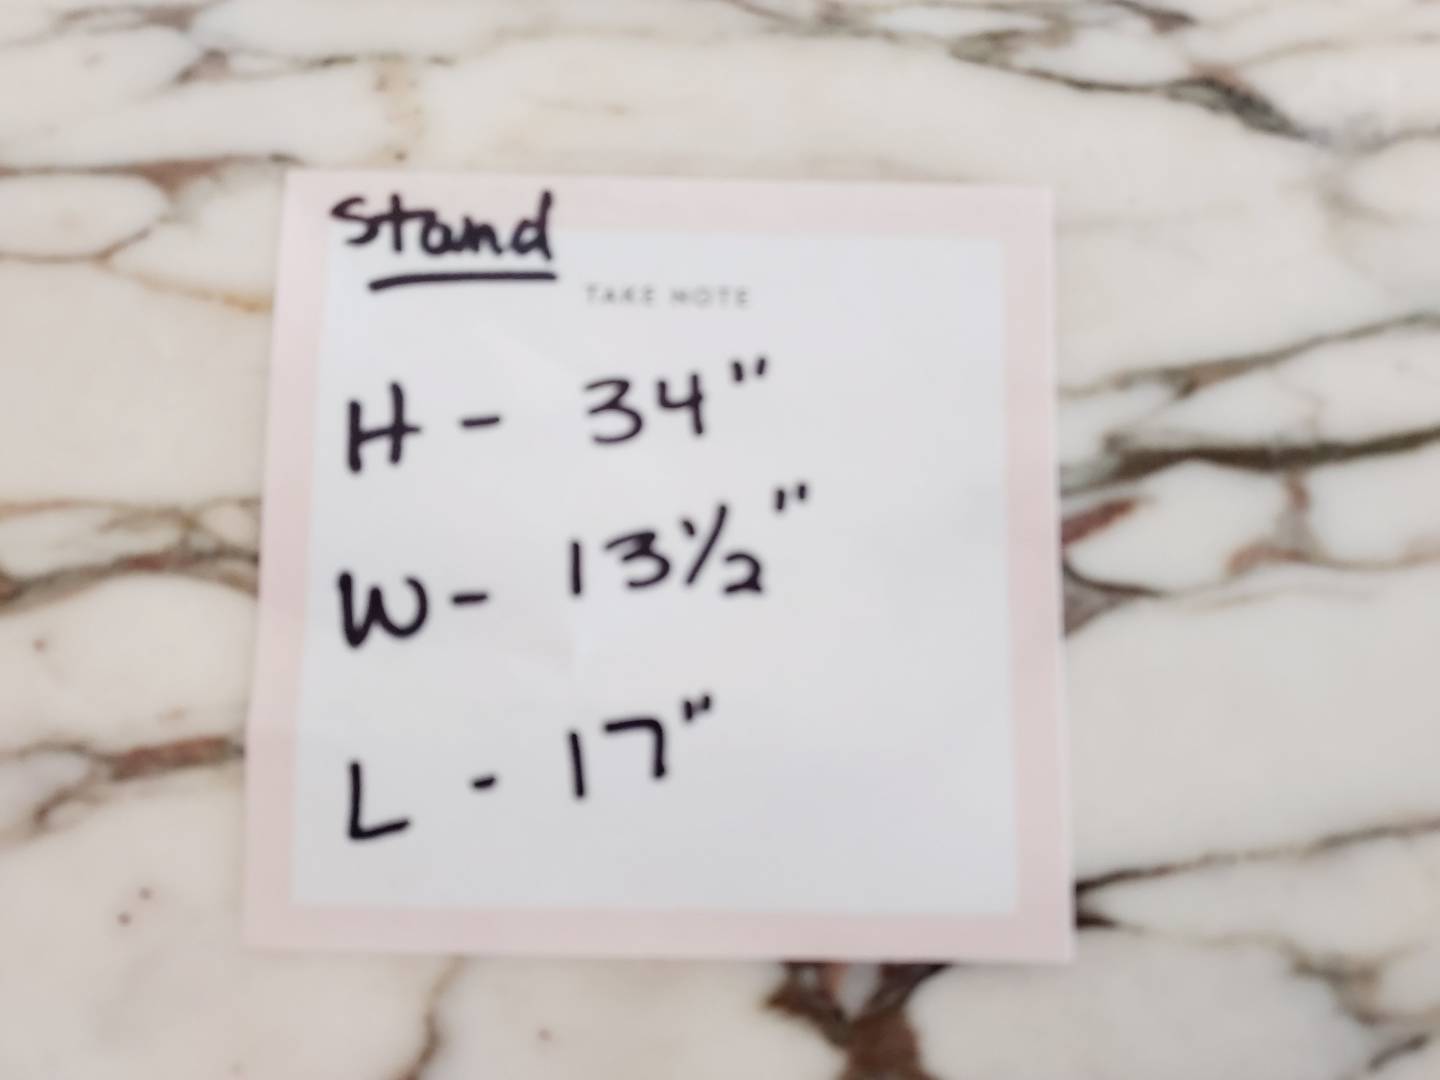 Stand
TAKE NOTE
H - 34"
W - 13 1/2"
L - 17"